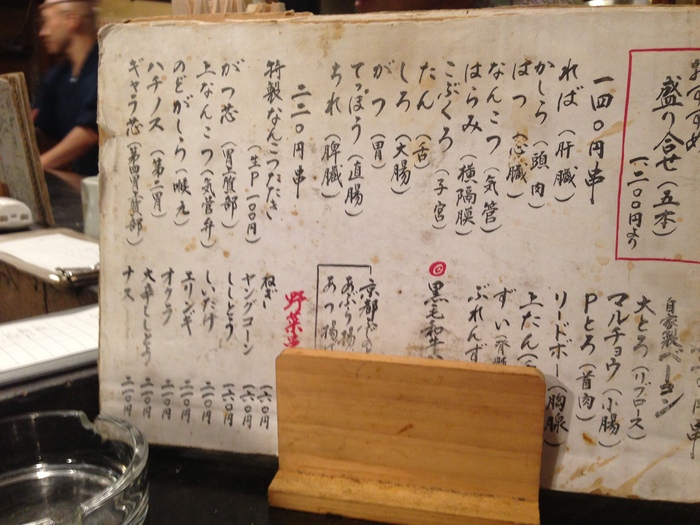 おすすめ
盛り合せ（五本）
一二〇〇円より
一四〇円串
れば（肝臓）
かしら（頭肉）
はつ（心臓）
なんこつ（気管）
はらみ（横隔膜）
こぶくろ（子宮）
たん（舌）
しろ（大腸）
がつ（胃）
てっぽう（直腸）
ちれ（脾臓）
二二〇円串
特製なんこつたたき
（生P一〇〇円）
がつ芯（胃上質部）
上なんこつ（気管弁）
のどがしら（喉元）
ハチノス（第二胃）
ギャラ芯（第四胃上質部）
円串
自家製ベーコン
大とろ（リブロース）
マルチョウ（小腸）
Pとろ（首肉）
リードボー（胸腺）
上たん
ずい（脊髄
ぶれんず
◎黒毛和牛
京都
あぶり揚げ
あつ揚げ
野菜
ねぎ 一六〇円
ヤングコーン 一六〇円
ししとう 一六〇円
しいたけ 二一〇円
エリンギ 二一〇円
オクラ 二一〇円
大辛ししとう 二一〇円
ナス 二一〇円